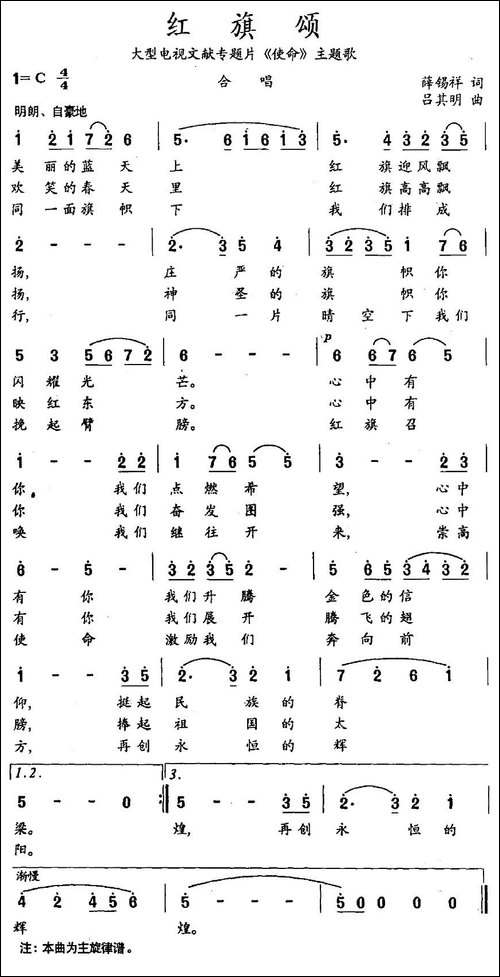 红旗颂
大型电视文献专题片《使命》主题歌
1=C 4/4
合唱
薛锡祥 词
吕其明 曲
明朗、自豪地
美丽的蓝天上 红旗迎风飘
欢笑的春天里 红旗高高飘
同一面旗帜下 我们排成
2 - - - 2· 3 5 4 3 2 3 5 1 7 6
扬, 庄严的旗帜你
扬, 神圣的旗帜你
行, 同一片晴空下我们
p
5 3 5 6 7 2 6 - - - 6 6 7 6 5
闪耀光芒。 心中有
映红东方。 心中有
挽起臂膀。 红旗召
1 - - 2 2 1 7 6 5 5 3 - - 2 3
你, 我们点燃希望, 心中
你 我们奋发图强, 心中
唤 我们继往开来, 崇高
6 - 5 - 3 2 3 5 2 - 5 6 5 3 4 3 2
有你 我们升腾 金色的信
有你 我们展开 腾飞的翅
使命 激励我们 奔向前
1 - - 3 5 2· 3 2 1 7 2 6 1
仰, 挺起民族的脊
膀, 捧起祖国的太
方, 再创永恒的辉
1.2. 3.
5 - - 0 5 - - 3 5 2· 3 2 1
梁。 煌, 再创永恒的
阳。
渐慢
4 2 4 5 6 5 - - - 5 0 0 0 0
辉 煌。
注：本曲为主旋律谱。